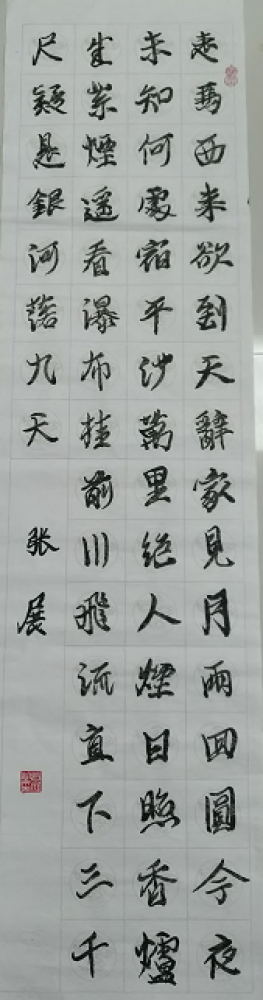 走馬西来欲到天辭家見月兩回圓今夜
未知何處宿平沙萬里絶人煙日照香爐
生紫煙遥看瀑布挂前川飛流直下三千
尺疑是銀河落九天
张展